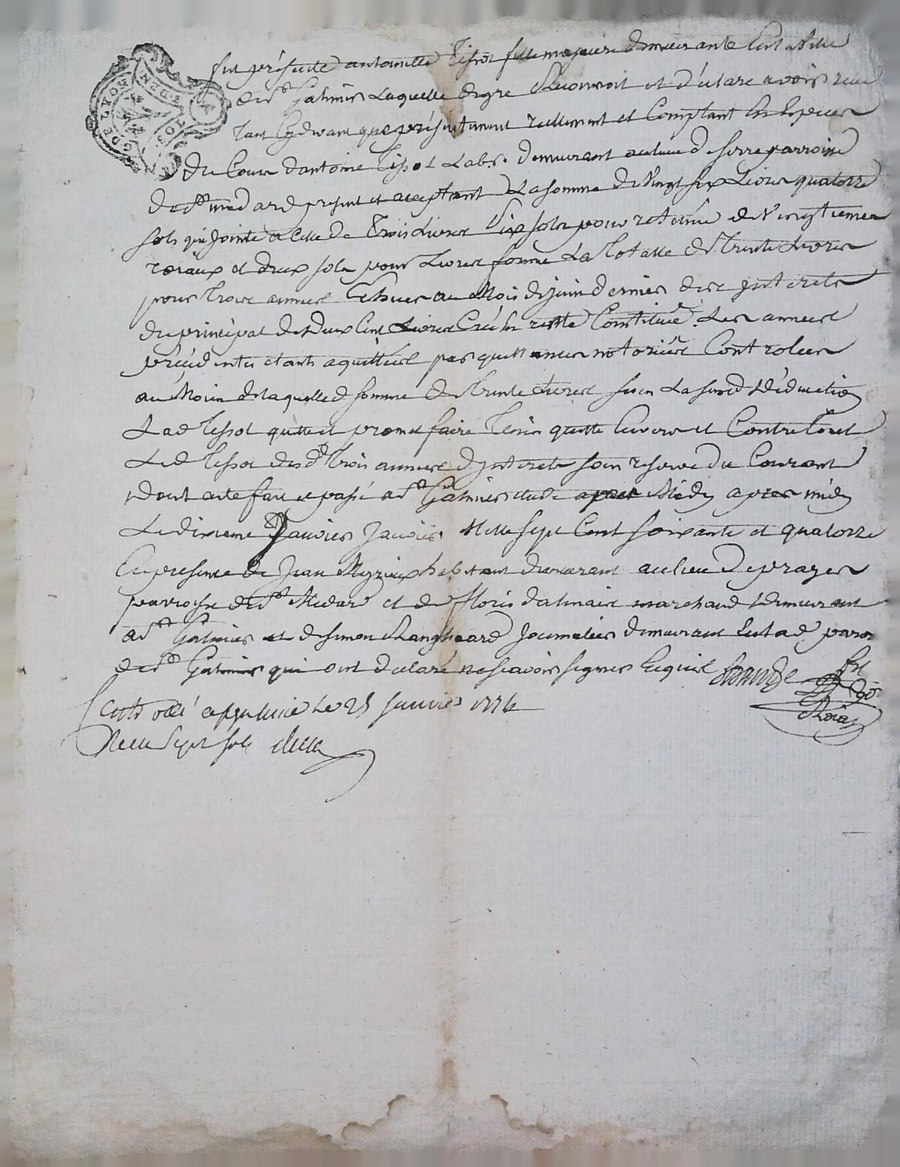 G DE LYON
fut présente antoinette Tissot fille majeure demeurante en la ville
de St Galmier Laquelle de gré Reconnoit et déclare avoir reçu
tant cydevant que présentement reellement et Comptant En Especes
du Cours dantoine Tissot Labr. demeurant au lieu de parroisse
de St medard présent et acceptant La somme de Vingt six Livres quatorze
sols qui jointe a Celle de Trois Livres six sols pour retenue de Vingtiemes
royaux et deux sols pour Livres forme La Totalle de Trente Livres
pour trois années Echues au Mois de juin dernier des interets
du principal de Deux Cent Livres Créé En rente Constituée. Les années
précédentes étant aquittées par quittances notoriées Controlées
au Moien de laquelle de somme de Trente Livres sous La susd déduction
La de Tissot quitte et promet faire Tenir quitte Envers et Contre tous
Le d Tissot desd Trois années d'interets sous reserve du Courant
Dont acte fait et passé a St Galmier étude apres Midy apres midy
Le dixieme Janvier Janvier Mille Sept Cent soixante et quatorze
En presence de Jean habitant demeurant au lieu de
parroisse de St Medard et de floris marchand Demeurant
a St Galmier et de Simon Journalier demeurant En lad parroisse
de St Galmier qui ont déclaré ne scavoir signer Enquis
Controllé a St Galmier Le 25 Janvier 1774
Reçu Sept sols